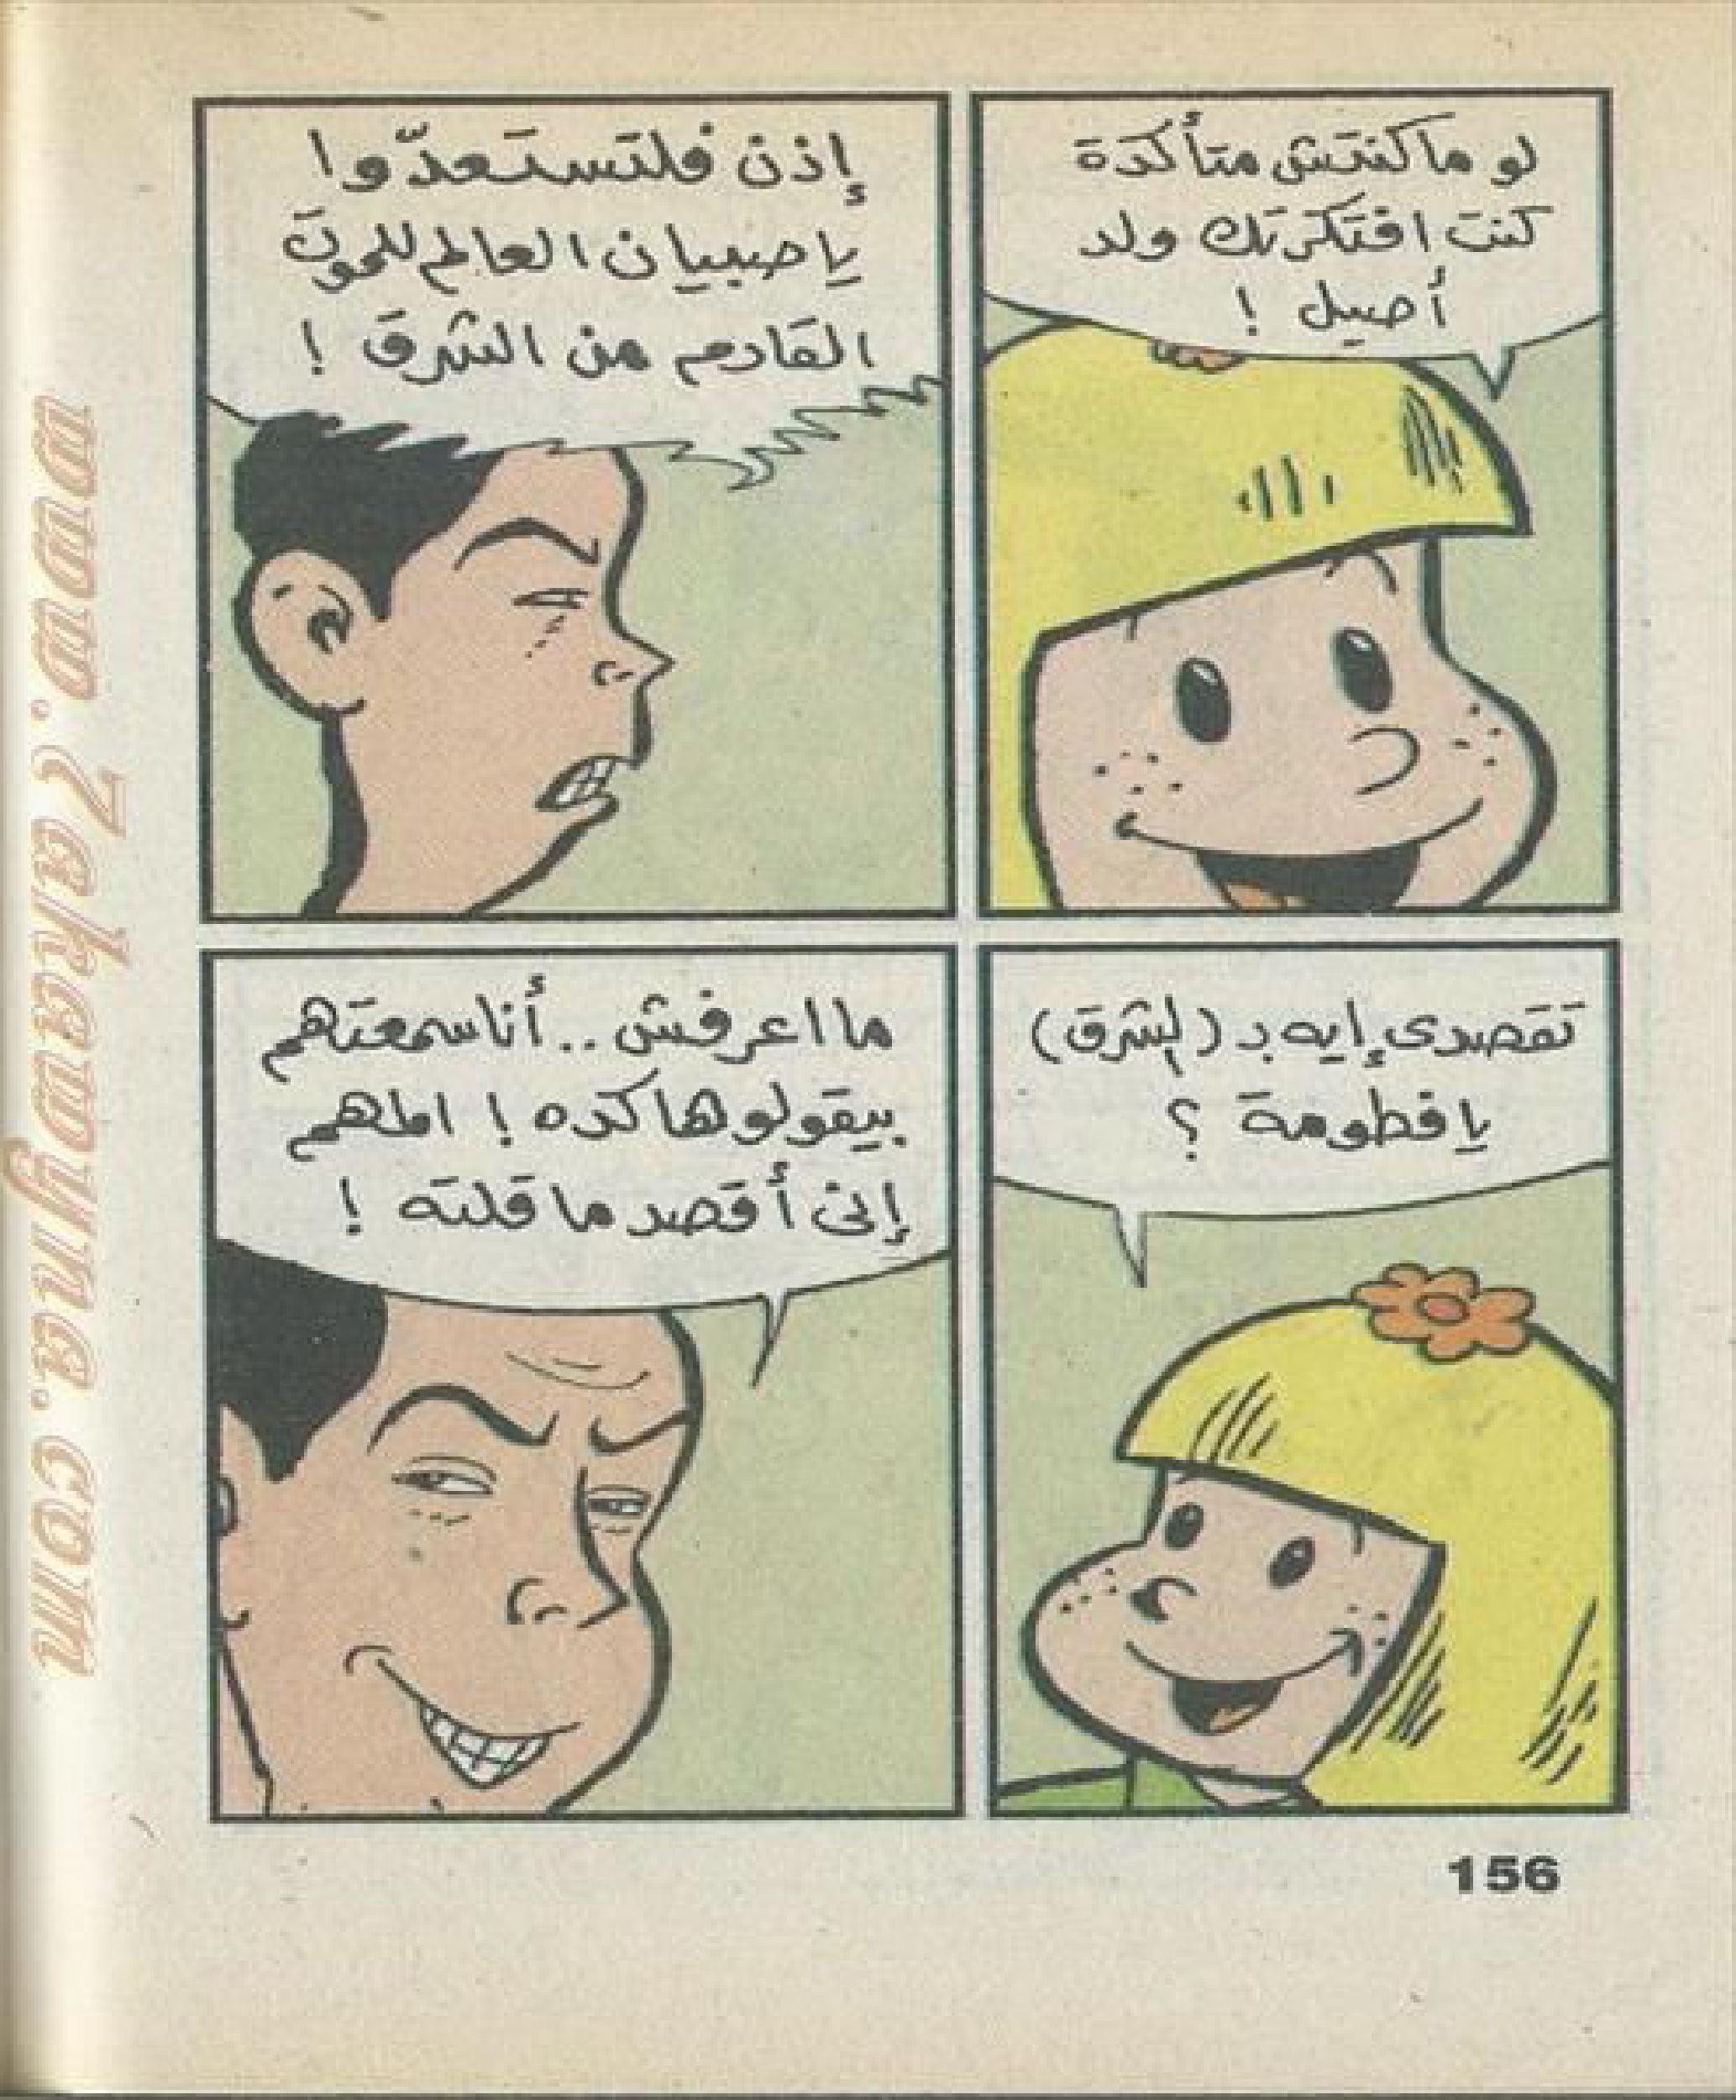 لو ماكنتش متأكدة
كنت افتكرتك ولد
أصيل !
إذن فلتستعدّوا
ياصبيان العالم للموت
القادم من الشرق !
تقصدى إيه بـ (الشرق)
يافطومة ؟
ما اعرفش .. أنا سمعتهم
بيقولوها كده ! المهم
إنى أقصد ما قلته !
156
www.7akawyna.com